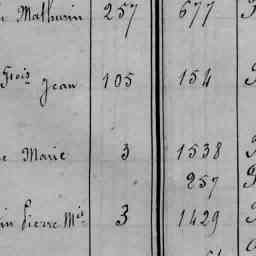 Mathurin 257 677
Jean 105 154
Marie 3 1538
257
Pierre Mie 3 1429